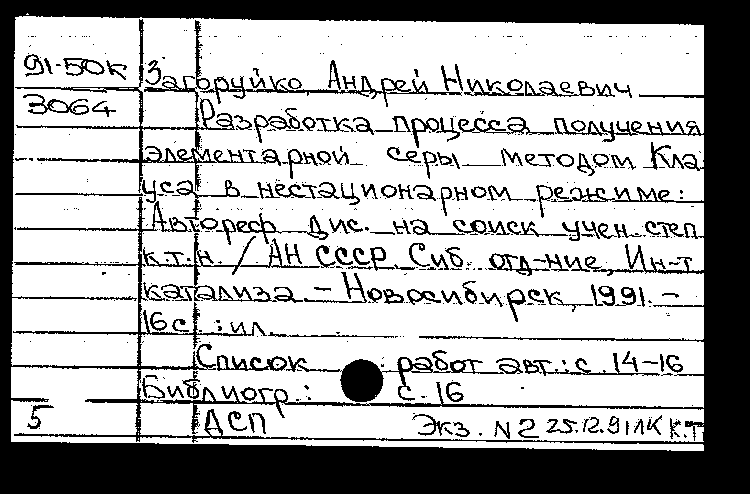 91-50К Загоруйко, Андрей Николаевич
3064 Разработка процесса получения
элементарной серы методом Кла-
уса в нестационарном режиме:
Автореф. дис. на соиск. учен. степ.
к.т.н. / АН СССР. Сиб. отд-ние, Ин-т
катализа. - Новосибирск, 1991. -
16 с. : ил.
Список работ авт.: с. 14-16
Библиогр.: с. 16
5 ДСП Экз. N 2 25.12.91 ЛК К.Т